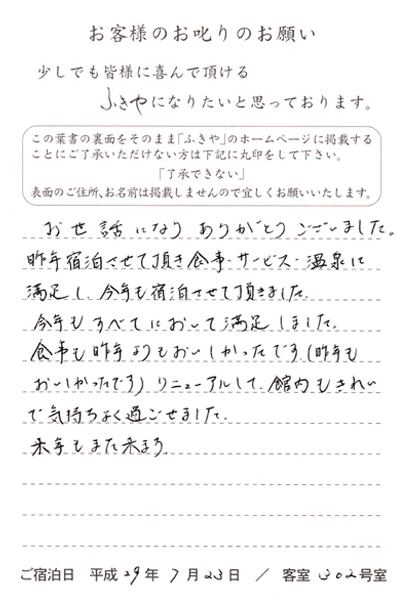 お客様のお叱りのお願い
少しでも皆様に喜んで頂ける
ふきやになりたいと思っております。
この葉書の裏面をそのまま「ふきや」のホームページに掲載する
ことにご了承いただけない方は下記に丸印をして下さい。
「了承できない」
表面のご住所、お名前は掲載しませんので宜しくお願いいたします。
お世話になり ありがとうございました。
昨年宿泊させて頂き食事・サービス・温泉に
満足し、今年も宿泊させて頂きました。
今年もすべてにおいて満足しました。
食事も昨年よりもおいしかったです。(昨年も
おいしかったです) リニューアルして、館内もきれい
で気持ちよく過ごせました。
来年もまた来まう。
ご宿泊日 平成29年 7月23日 / 客室 302号室